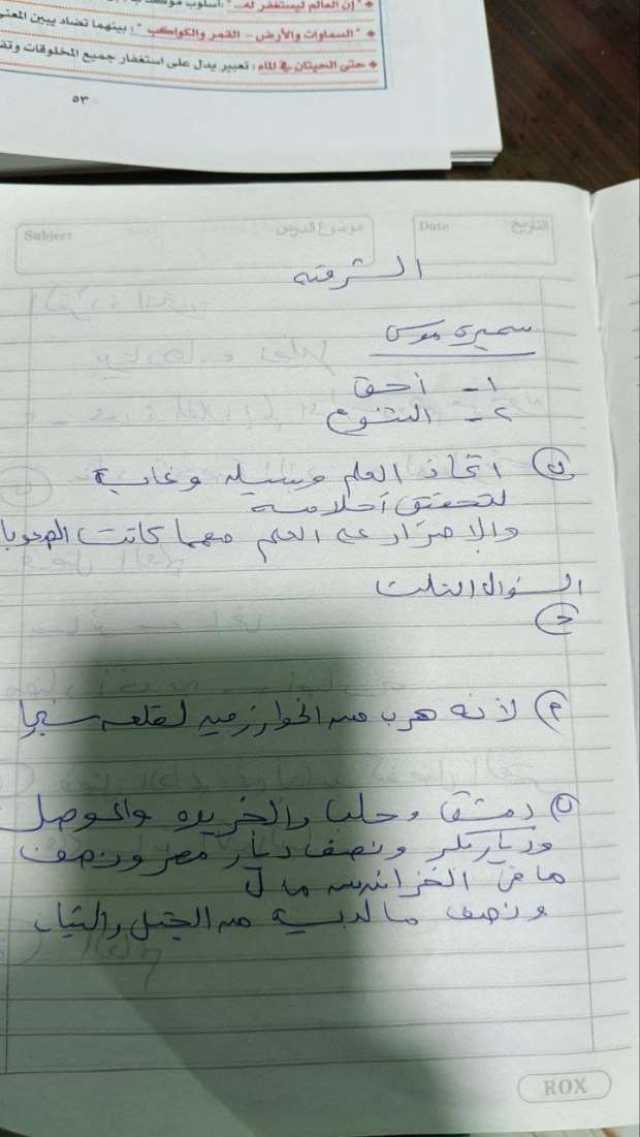 "إن العالم ليستغفر له..." أسلوب
"السماوات والأرض - القمر والكواكب": بينهما تضاد يبين المعنى
حتى الحيتان في الماء: تعبير يدل على استغفار جميع المخلوقات
٥٣
Subject موضوع الدرس Date التاريخ
الشرقية
سميرة موسى
١- أحق
٢- التنوع
ن اتخاذ العلم وسيلة وغاية
لتحقيق أحلامه
والإصرار على العلم مهما كانت الصعوبا
السؤال التلت
م لأنه هرب من الخوارزمية لقلعه سنجا
ن دمشق وحلب والخريده والموصل
وديار بكر ونصف ديار مصر ونصف
ما في الخزائن من مال
ونصف ما لديه من الخيل والتياب
ROX